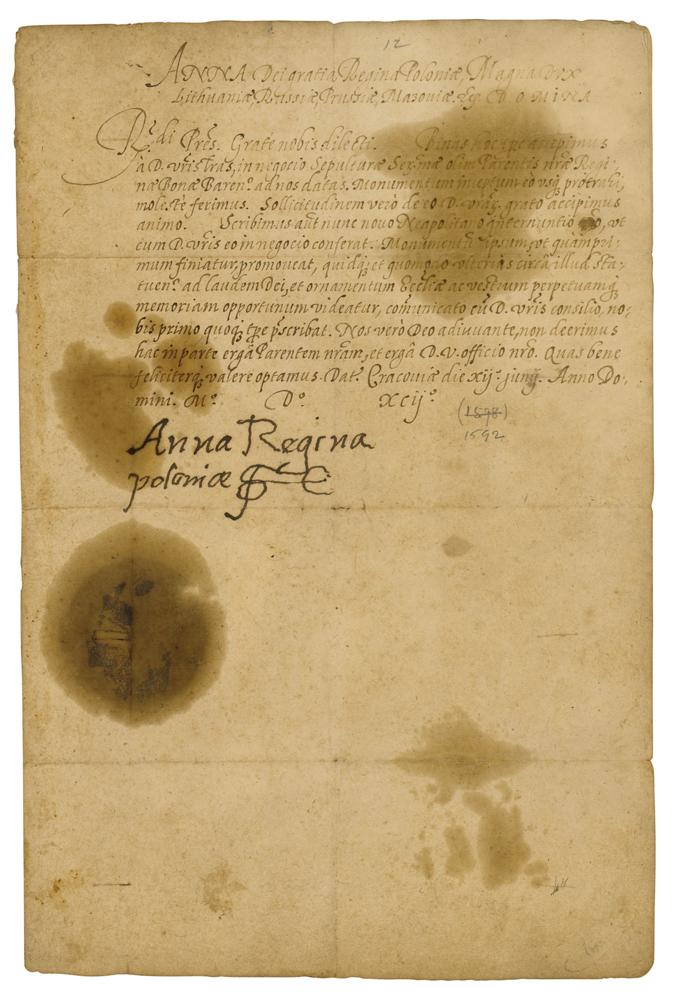 12
ANNA Dei gratia Regina Poloniæ, Magna DVX
Lithuaniæ, Russiæ, Prussiæ, Mazouiæ. &c DOMINA
R.di Pres. Grate nobis dilecti. Binas hoc tpe accepimus
a D. vris lras, in negocio Sepulturæ Ser.mæ olim Parentis nræ Regi-
næ Bonæ Paren.s ad nos datas. Monumentum inceptum eo vsq3 protrahi,
moleste ferimus. Sollicitudinem vero de eo D. vrar. grato accipimus
animo. Scribimus aut nunc nouo Neapolitano internuntio nro, vt
cum D. vris eo in negocio conferat. Monumentū ipsum, vt quampri-
mum finiatur, promoueat, quidq3 et quomodo vlterius circa illud sta-
tuen.s ad laudem Dei, et ornamentum Eccliæ ac vestrum perpetuamq3
memoriam opportunum videatur, com̄unicato cū D. vris consilio, no-
bis primo quoq3 tpe pscribat. Nos verò Deo adiuuante, non deerimus
hac in parte ergà Parentem nram, et ergà D. V. officio nro. Quas bene
feliciterq3 valere optamus. Dat. Cracouiæ die xij. junij. Anno Do-
mini. M.o D.o xcij.o
(1598)
1592
Anna Regina
poloniæ